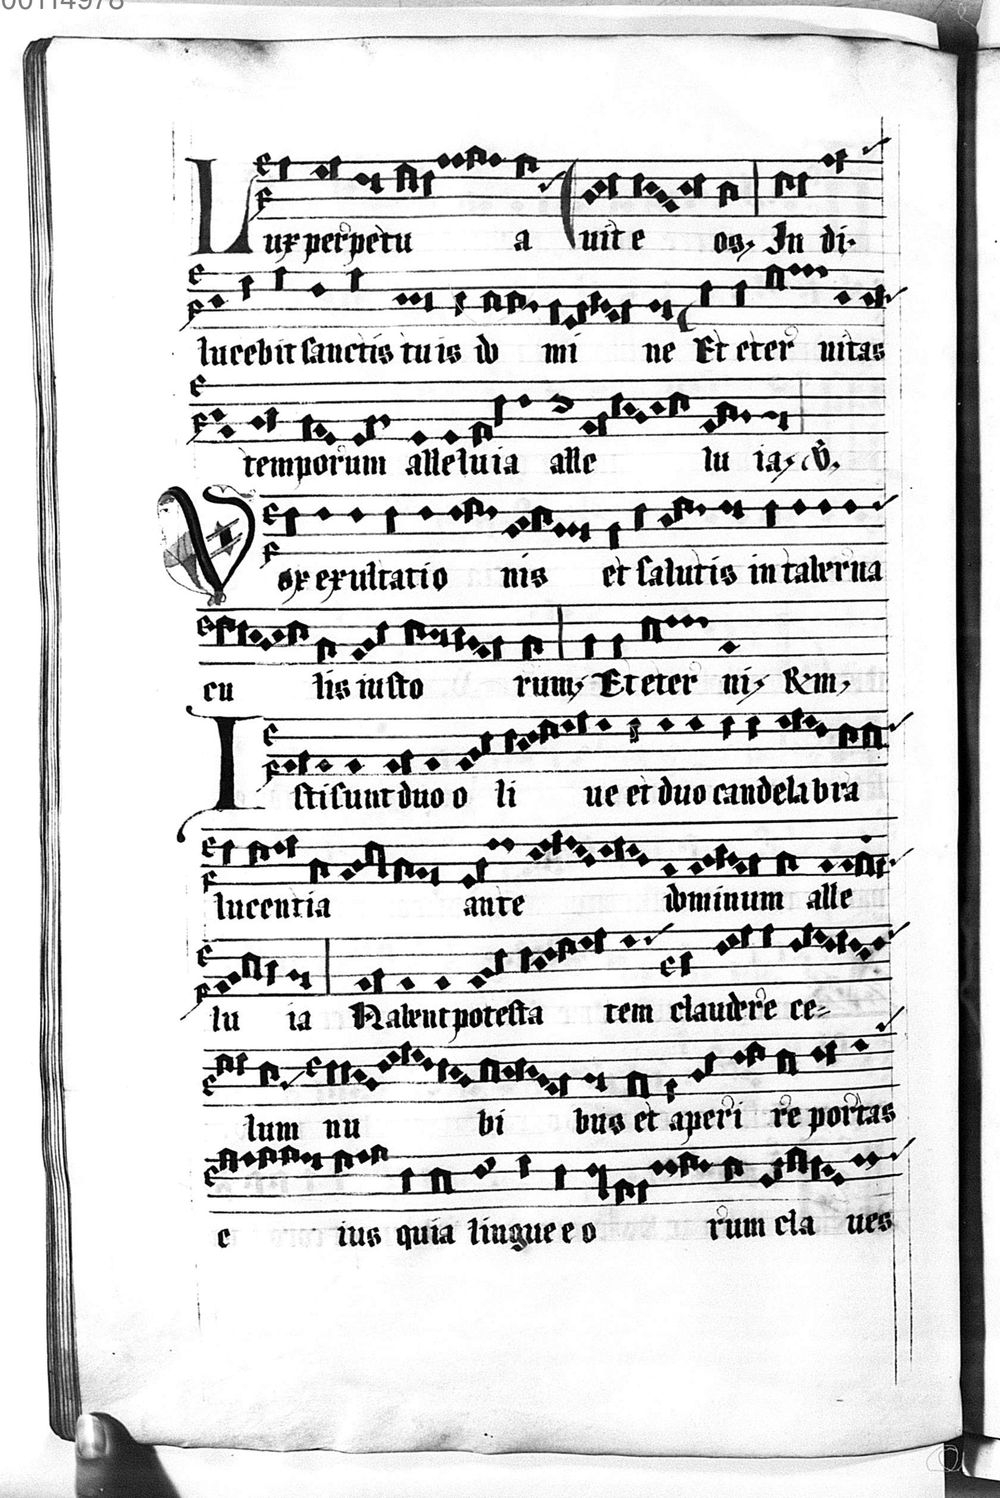 00114978
Lux perpetu a uit e os, In di-
lucebit sanctis tuis do mi ne Et eter nitas
temporum alleluia alle lu ia, V,
Vox exultatio nis et salutis in taberna
cu lis iusto rum, Et eter ni, Rm,
Isti sunt duo o li ue et duo candelabra
lucentia ante dominum alle
lu ia Habent potesta tem claudere ce-
lum nu bi bus et aperi re portas
e ius quia lingue e o rum cla ues